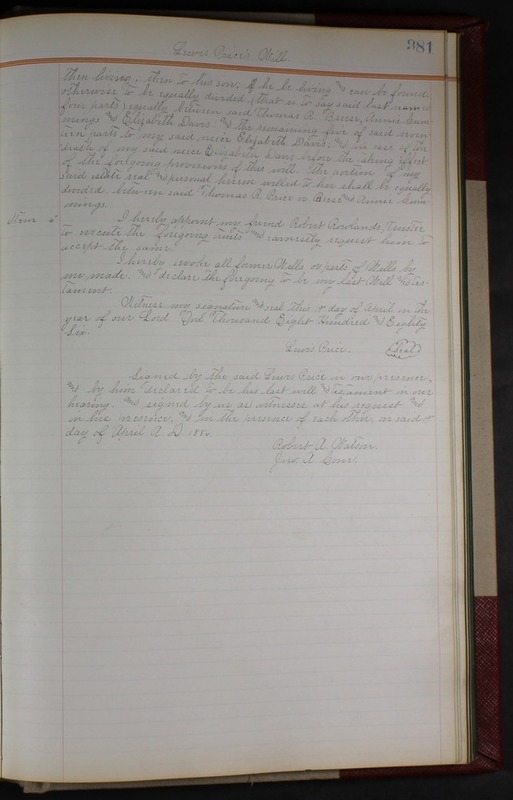 381
Lewis Price's Will.
then living, then to his son, if he be living and can be found,
otherwise to be equally divided, (that is to say said last named
four parts) equally between said Thomas R. Breese, Annie Cum
mings and Elizabeth Davis. and the remaining five of said seven
teen parts to my said niece Elizabeth Davis. and in case of the
death of my said niece Elizabeth Davis before the taking effect
of the foregoing provisions of this will. The portion of my
said estate real and personal herein willed to her shall be equally
divided between said Thomas R. Price or Breese and Annie Cum
mings.
Item 6" I hereby appoint my friend Robert Rowlands, Trustee
to execute the foregoing trusts and earnestly request him to
accept the same.
I hereby revoke all former Wills or parts of Wills by
me made. and declare the foregoing to be my last Will and Tes
tament.
Witness my signature and seal this day of April in the
year of our Lord One Thousand Eight Hundred and Eighty
Six.
Lewis Price. Seal
Signed by the said Lewis Price in our presence,
and by him declared to be his last will and testament in our
hearing. and signed by us as witnesses at his request and
in his presence, and in the presence of each other, on said
day of April A. D. 1886.
Robert A. Watson.
Jno. A.